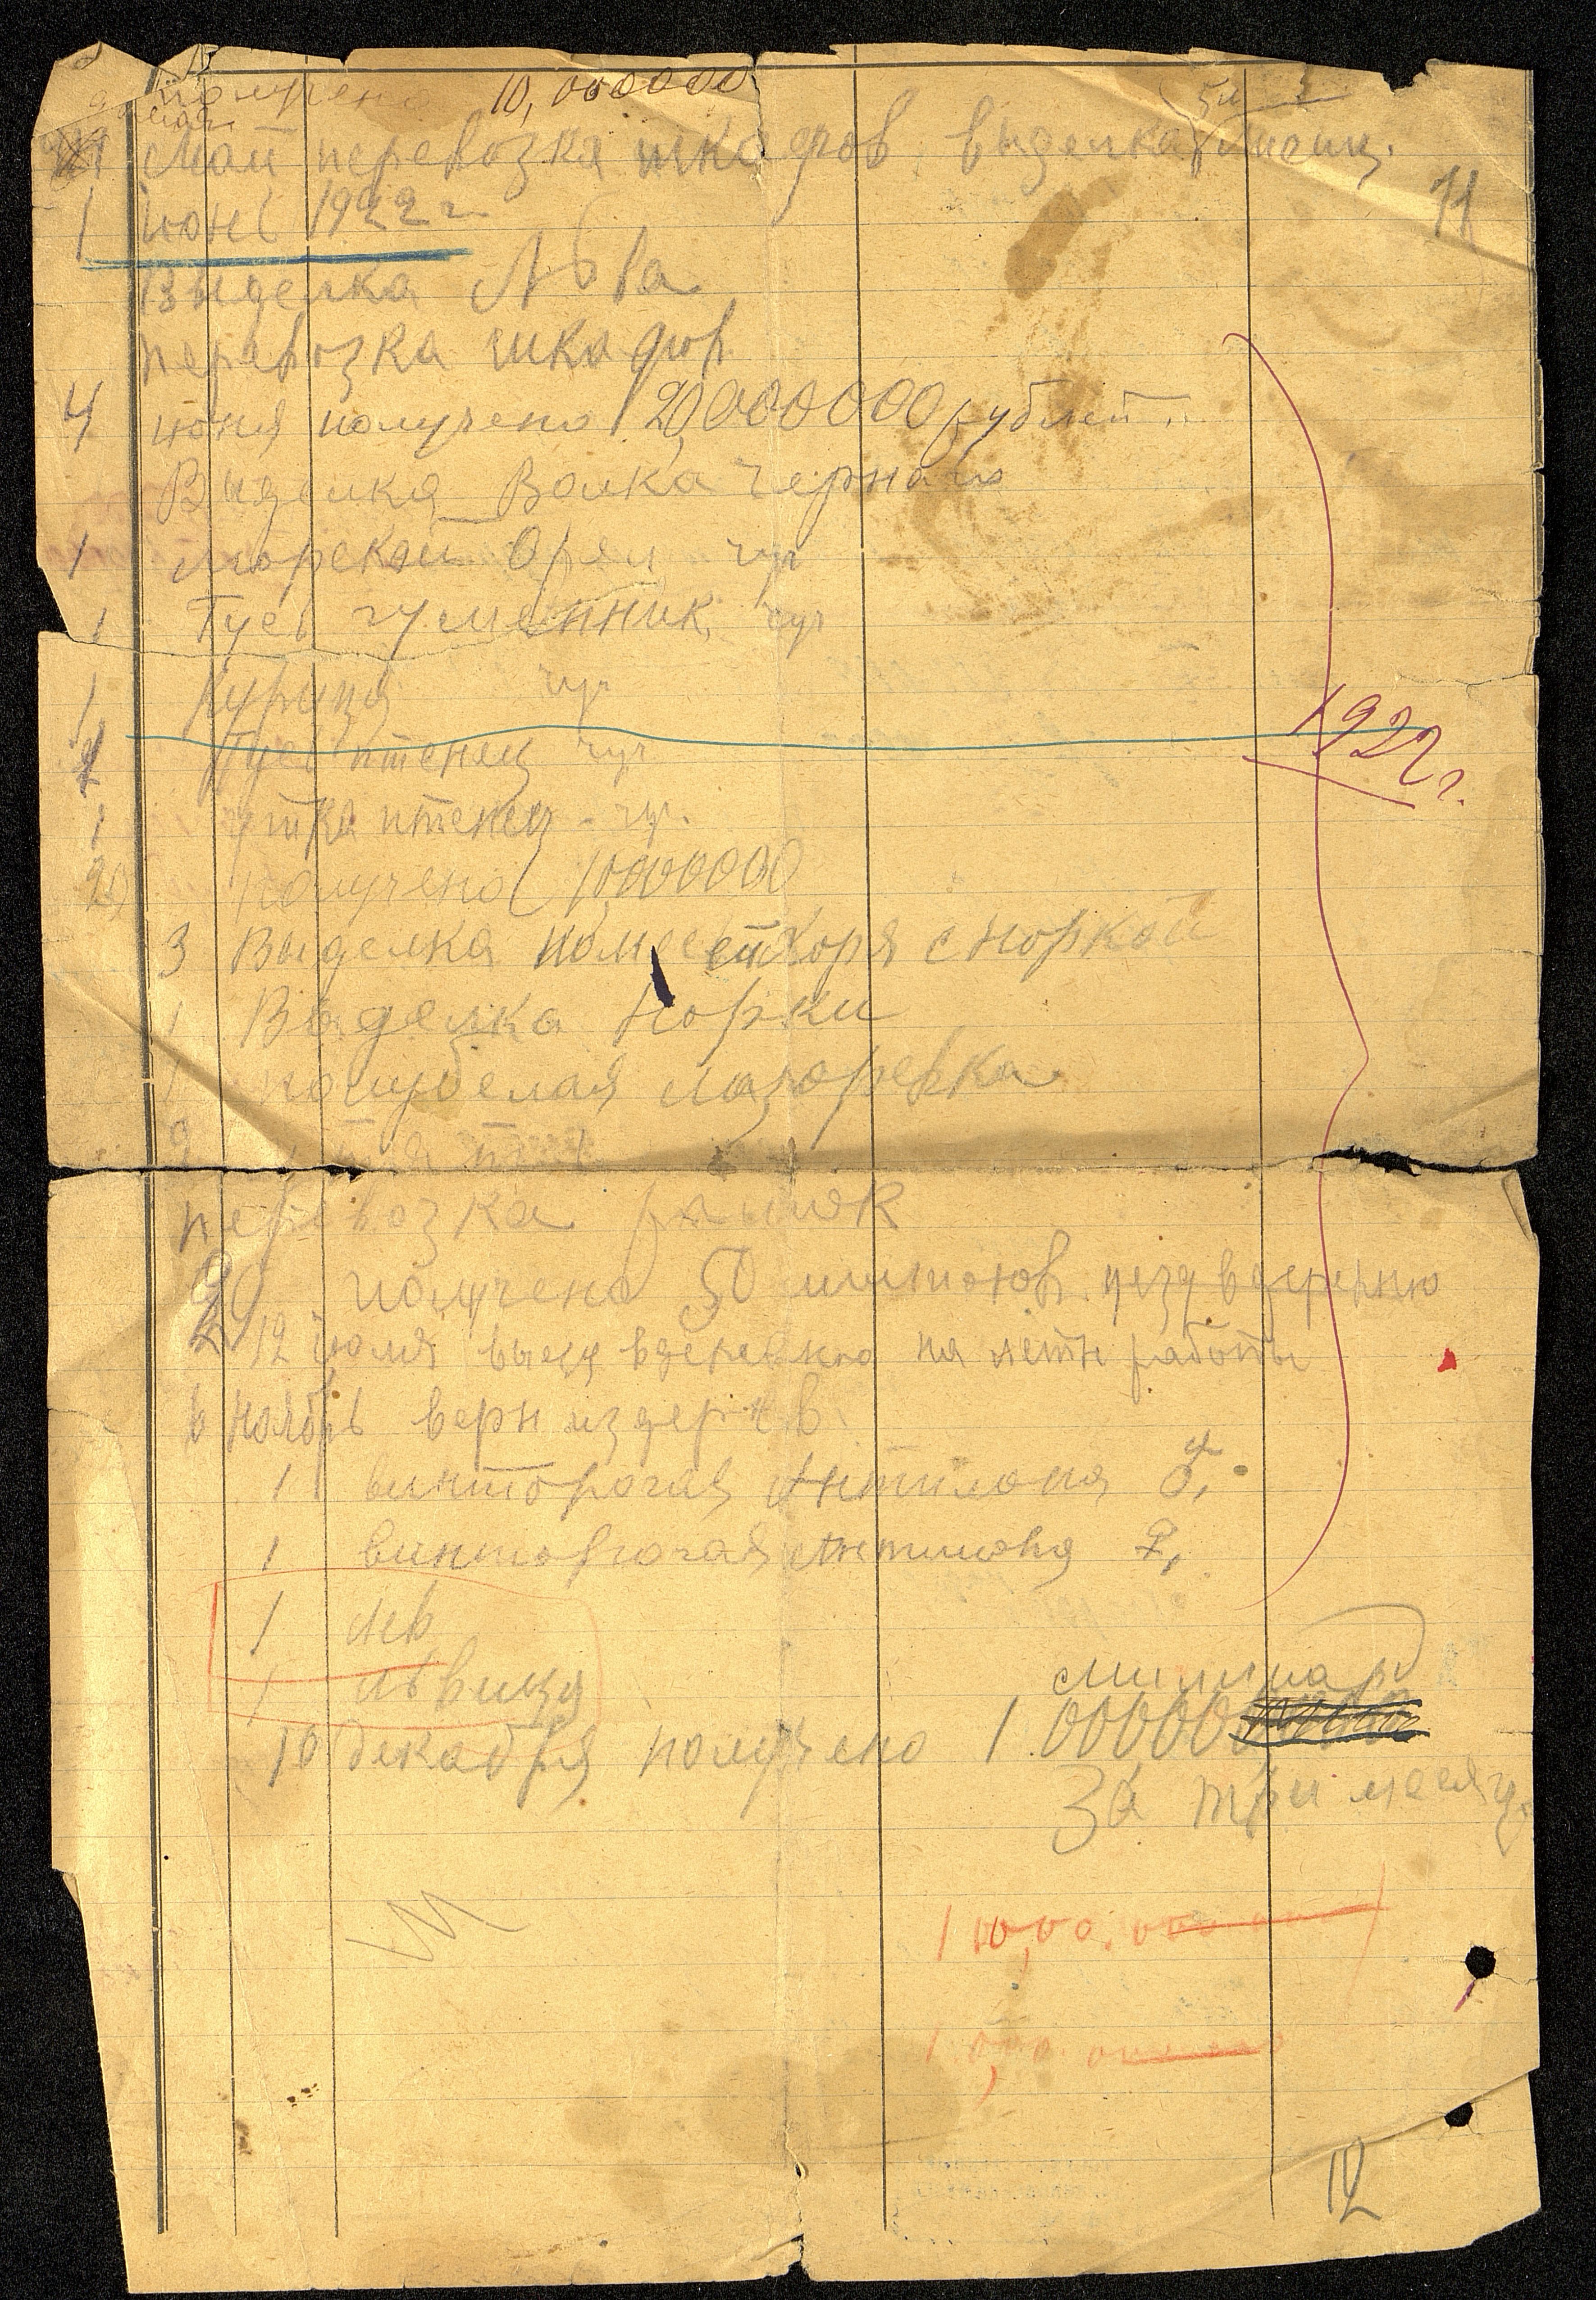 получено 10,000000
Май перевозка шкафов, выделка
11
1 июнь 1922 г
Выделка Льва
перевозка шкафов
4 июня получено 20,000000 рублей
Выделка Волка черного
1 Морской Орел чуч
1 Гусь гуменник чуч
1 Курица чуч
Гусь птенец чуч
1922 г.
1 утка птенец - чуч.
20 получено 10,000000
3 Выделка помесей Хоря с норкой
1 Выделка Норки
1 полубелая лазоревка
перевозка
получено 50 миллионов
12 июля выезд в деревню на летн работы
в ноябрь верн из дерев
1 винторогая Антилопа ♂.
1 винторогая Антилопа ♀.
1 лев
1 львица
миллиард
10 декабря получено 1 000000
За три месяц.
12